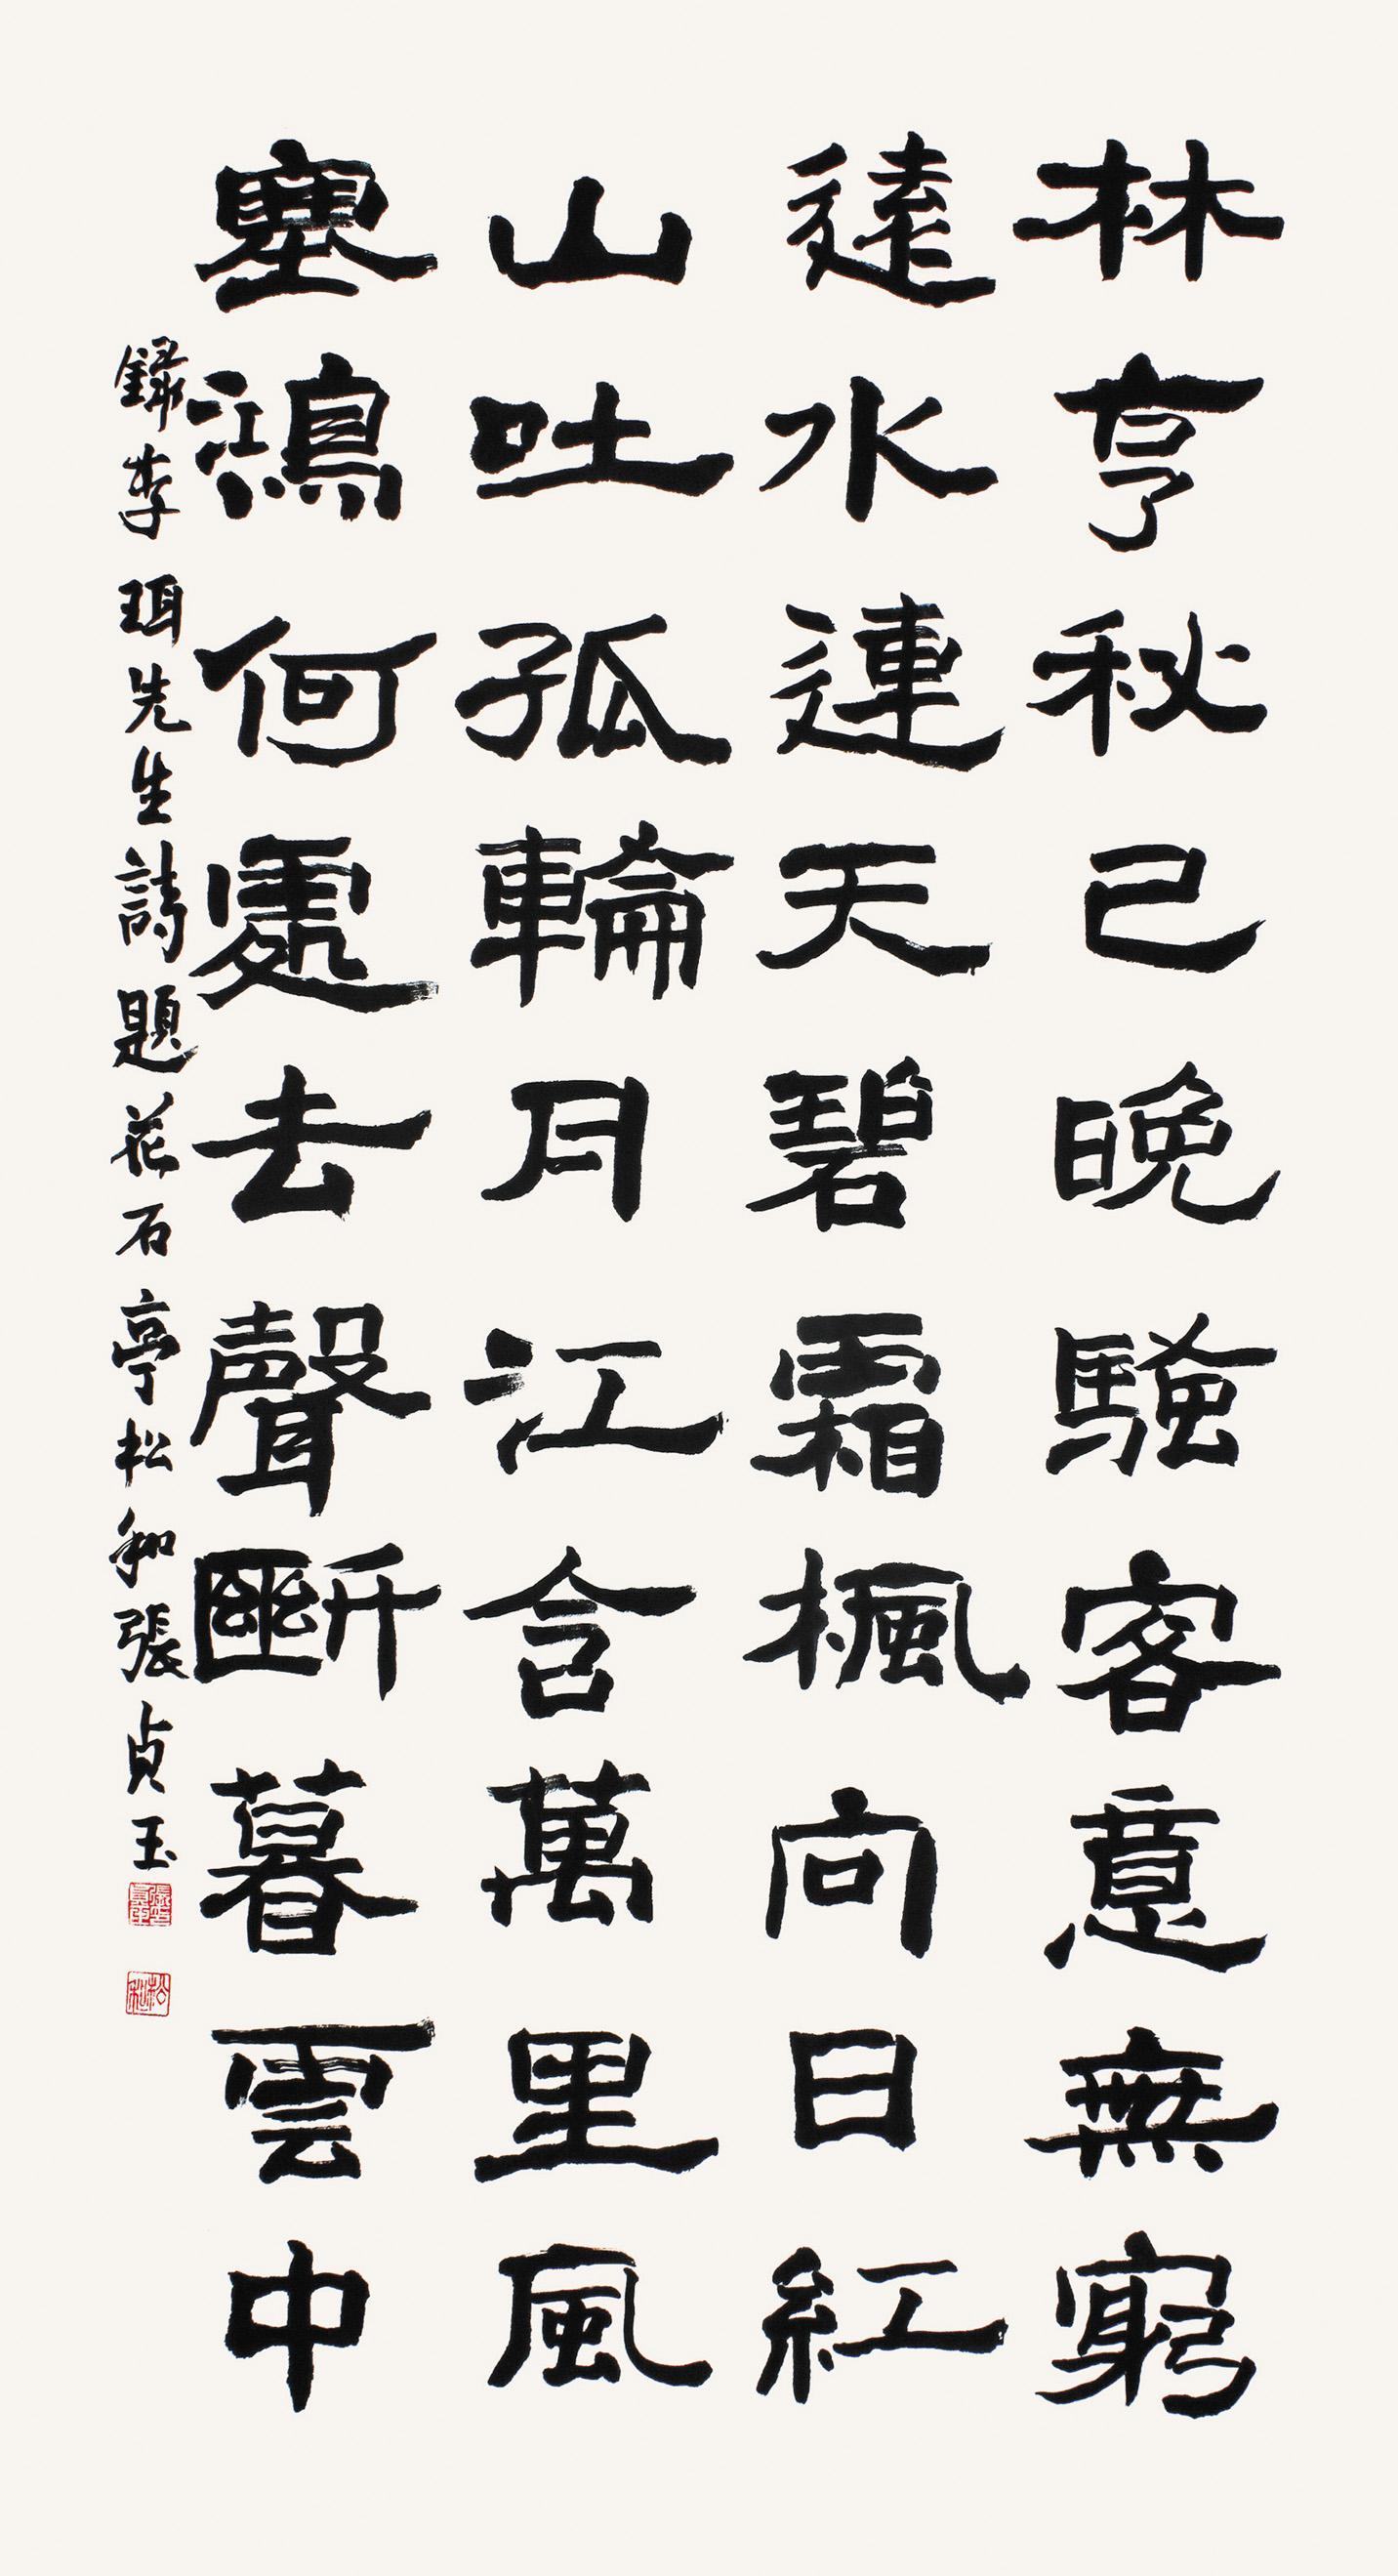 林亨秋己晚験客意無窮
遠水連天碧霜楓向日紅
山吐孤輪月江含萬里風
塞鴻何處去聲斷暮雲中
錄李珥先生詩題花石亭松和張貞玉
松和